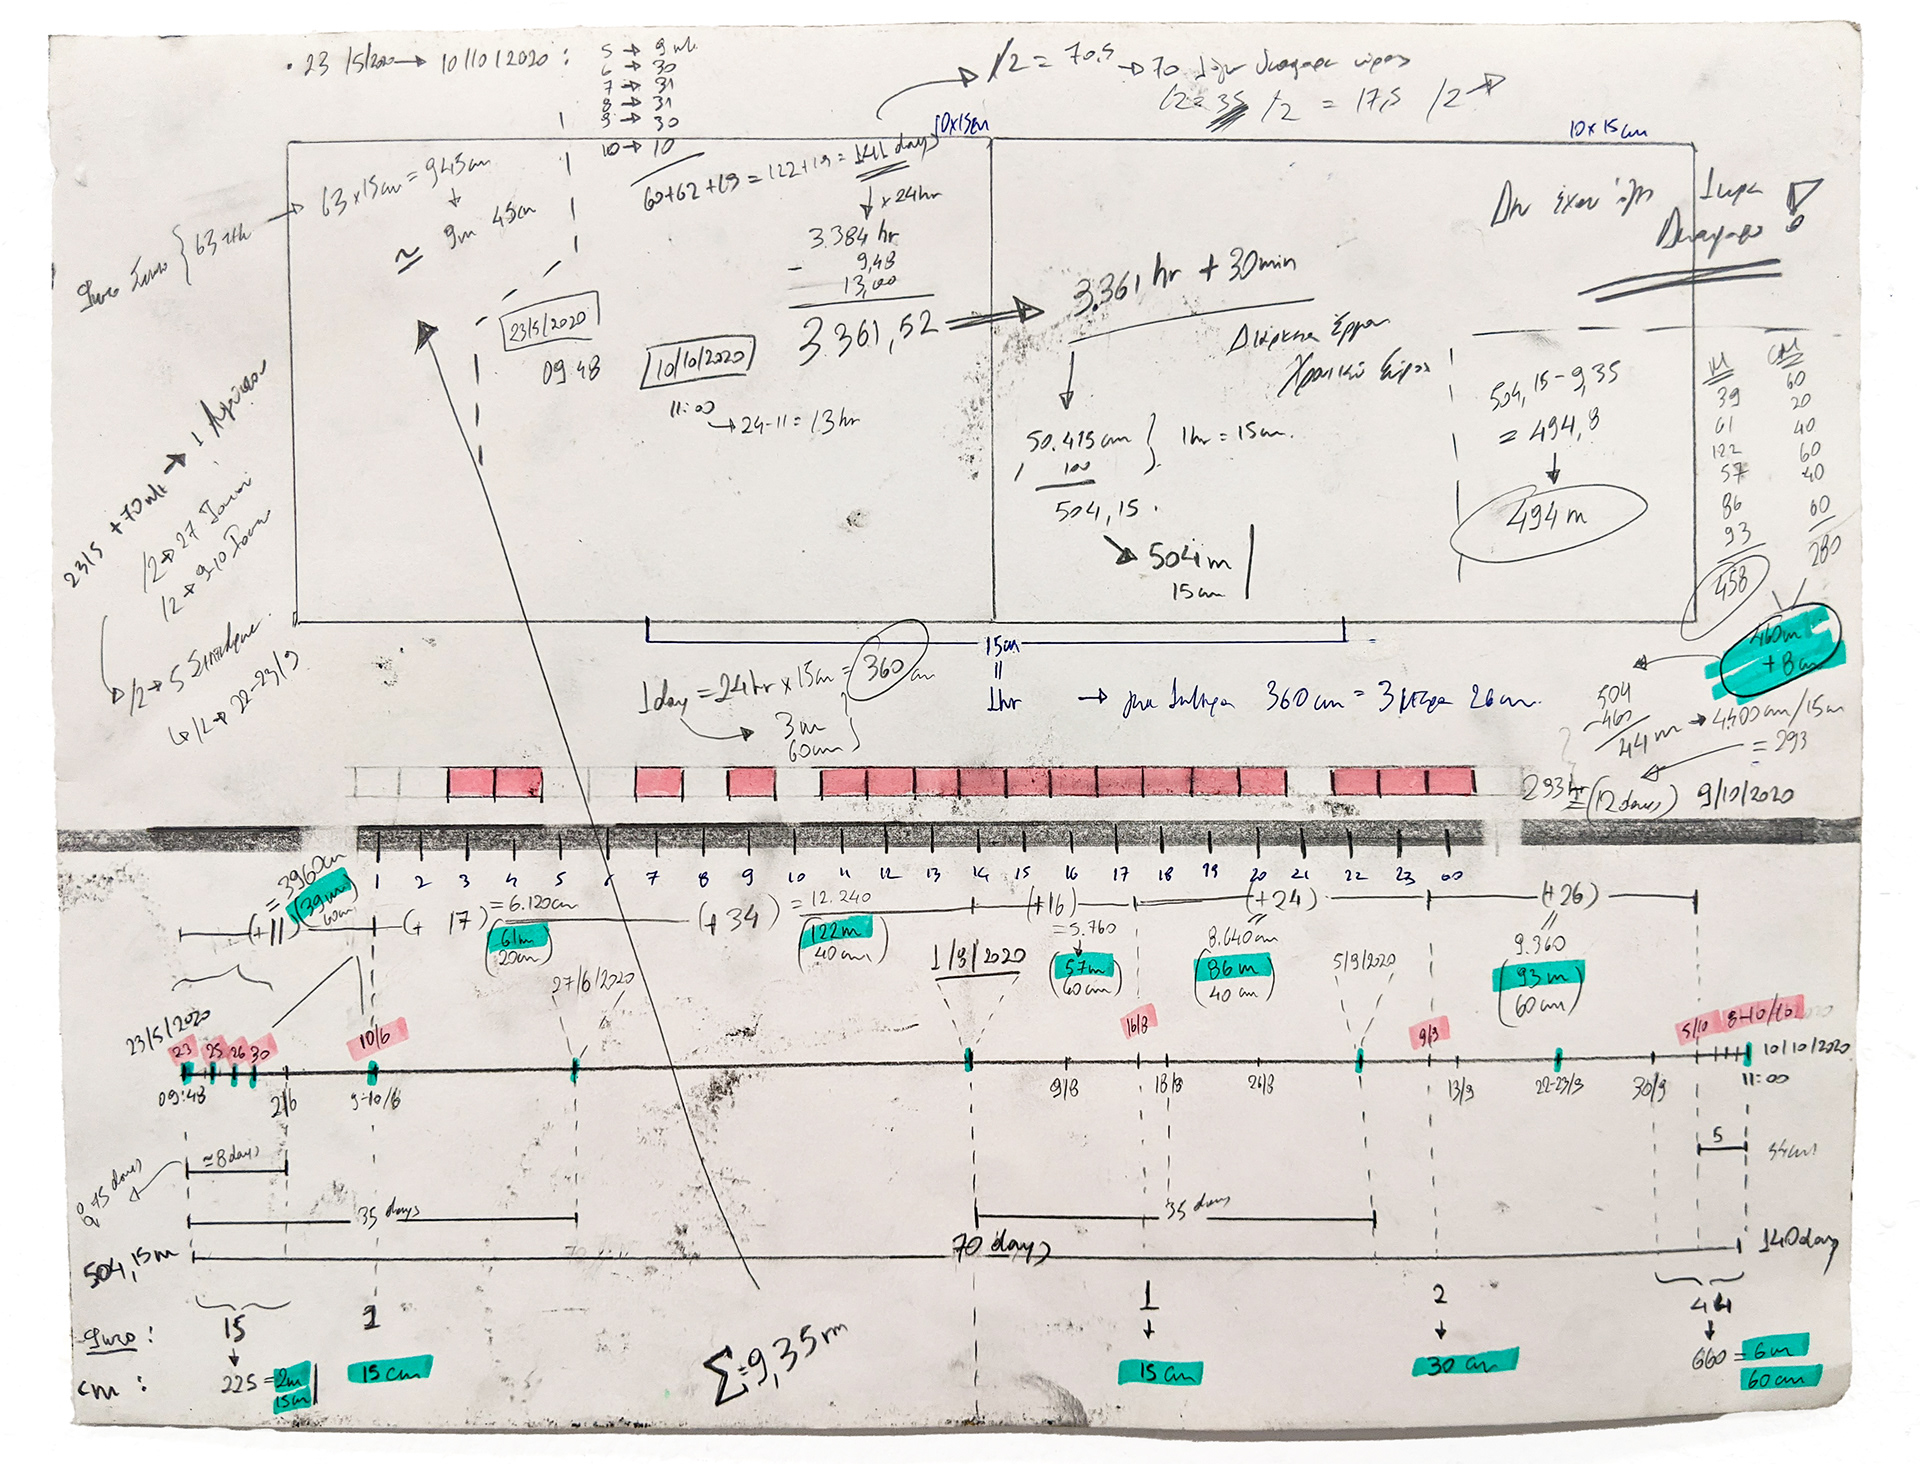 • 23/5/2020 → 10/10/2020 :
5 → 9
6 → 30
7 → 31
8 → 31
9 → 30
10 → 10
60+62+19 = 122+19 = 141 days
/2 = 70,5 → 70
/2 = 35 /2 = 17,5 /2 →
10x15cm
10x15cm
63 → 63x15cm = 945cm
≃ 9m 45cm
x 24hr
3.384 hr
9,48
- 13,00
3361,52
3.361 hr + 30min
23/5/2020
09 48
10/10/2020
11:00
→ 24-11 = 13hr
Διάρκεια Έργου
Χρονικό Εύρος
Δεν έχουν 1 ώρα
50.415cm } 1hr = 15cm.
100
504,15.
504m
15cm
504,15-9,35
= 494,8
494m
M CM
39 60
61 20
122 40
57 60
86 40
93 60
458 280
460m
+8cm
504
-460
44m → 4400cm/15cm
= 293
293hr = (12 days) 9/10/2020
23/5 +70 → 1 Αυγούστου
/2 → 27
/2 → 9-10
/2 → 5 Σεπτεμβρίου
/2 → 22-23/9
15cm
=
1hr
1day = 24hr x 15cm = 360cm
3m
60cm
→ 360cm = 3 μέτρα 26cm.
1 2 3 4 5 6 7 8 9 10 11 12 13 14 15 16 17 18 19 20 21 22 23 00
= 3960cm
(+11) (39m 60cm) (+17) = 6.120cm (+34) = 12.240 (+16) (+24) (+26)
(61m 20cm)
(122m 40cm)
= 5.760
(57m 60cm)
8.640cm
(86m 40cm)
9.360
(93m 60cm)
23/5/2020 27/6/2020 1/8/2020 5/9/2020
23 25 26 30 10/6 16/8 9/9 5/10 8-10/10 10/10/2020
09:48 2/6 9-10/6 9/8 18/8 26/8 13/9 22-23/9 30/9 11:00
≃8days 5 44cm
35 days 35 days
504,15m 70 days 140days
15 1 1 2 44
cm: 225 = 2m 15cm 15cm 15cm 30cm 660 = 6m 60cm
Σ=9,35m